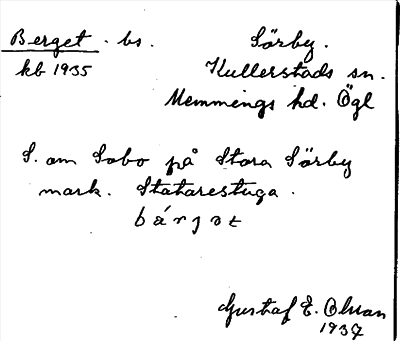 Berget. bs. Sörby.
kb 1935 Kullerstads sn.
Memmings hd. Ögl
S. om Sobo på Stora Sörby
mark. Statarestuga.
Gustaf E. Olsson